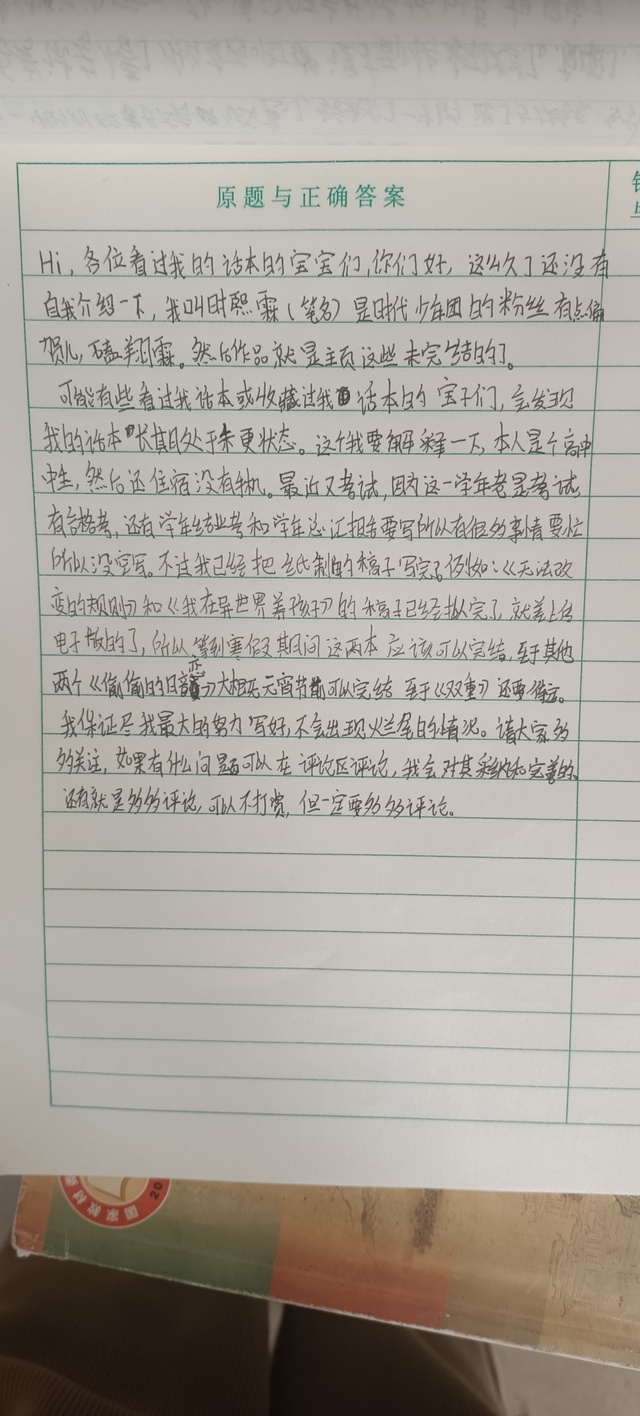 原题与正确答案
错
Hi，各位看过我的话本的宝宝们，你们好，这么久了还没有
自我介绍一下，我叫时熙霖（笔名）是时代少年团的粉丝 有点偏
贺儿，嗑翔霖。然后作品就是主页这些未完结的了。
可能有些看过我话本或收藏过我话本的宝子们，会发现
我的话本长期处于未更状态。这个我要解释一下，本人是个高中
中生，然后还住宿没有手机。最近又考试，因为这一学年老是考试
有合格考，还有学年结业考和学年总汇报告要写所以有很多事情要忙
所以没空写。不过我已经把纸制的稿子写完了例如：《无法改
变的规则》和《我在异世界养孩子》的稿子已经拟完了，就差上传
电子版的了，所以等到寒假期间这两本应该可以完结，至于其他
两个《偷偷的日恋》大概元宵节前可以完结 至于《双重》还要待定。
我保证尽我最大的努力写好，不会出现烂尾的情况。请大家多
多关注，如果有什么问题可以在评论区评论，我会对其采纳和完善的。
还有就是多多评论，可以不打赏，但一定要多多评论。
国家教材
20